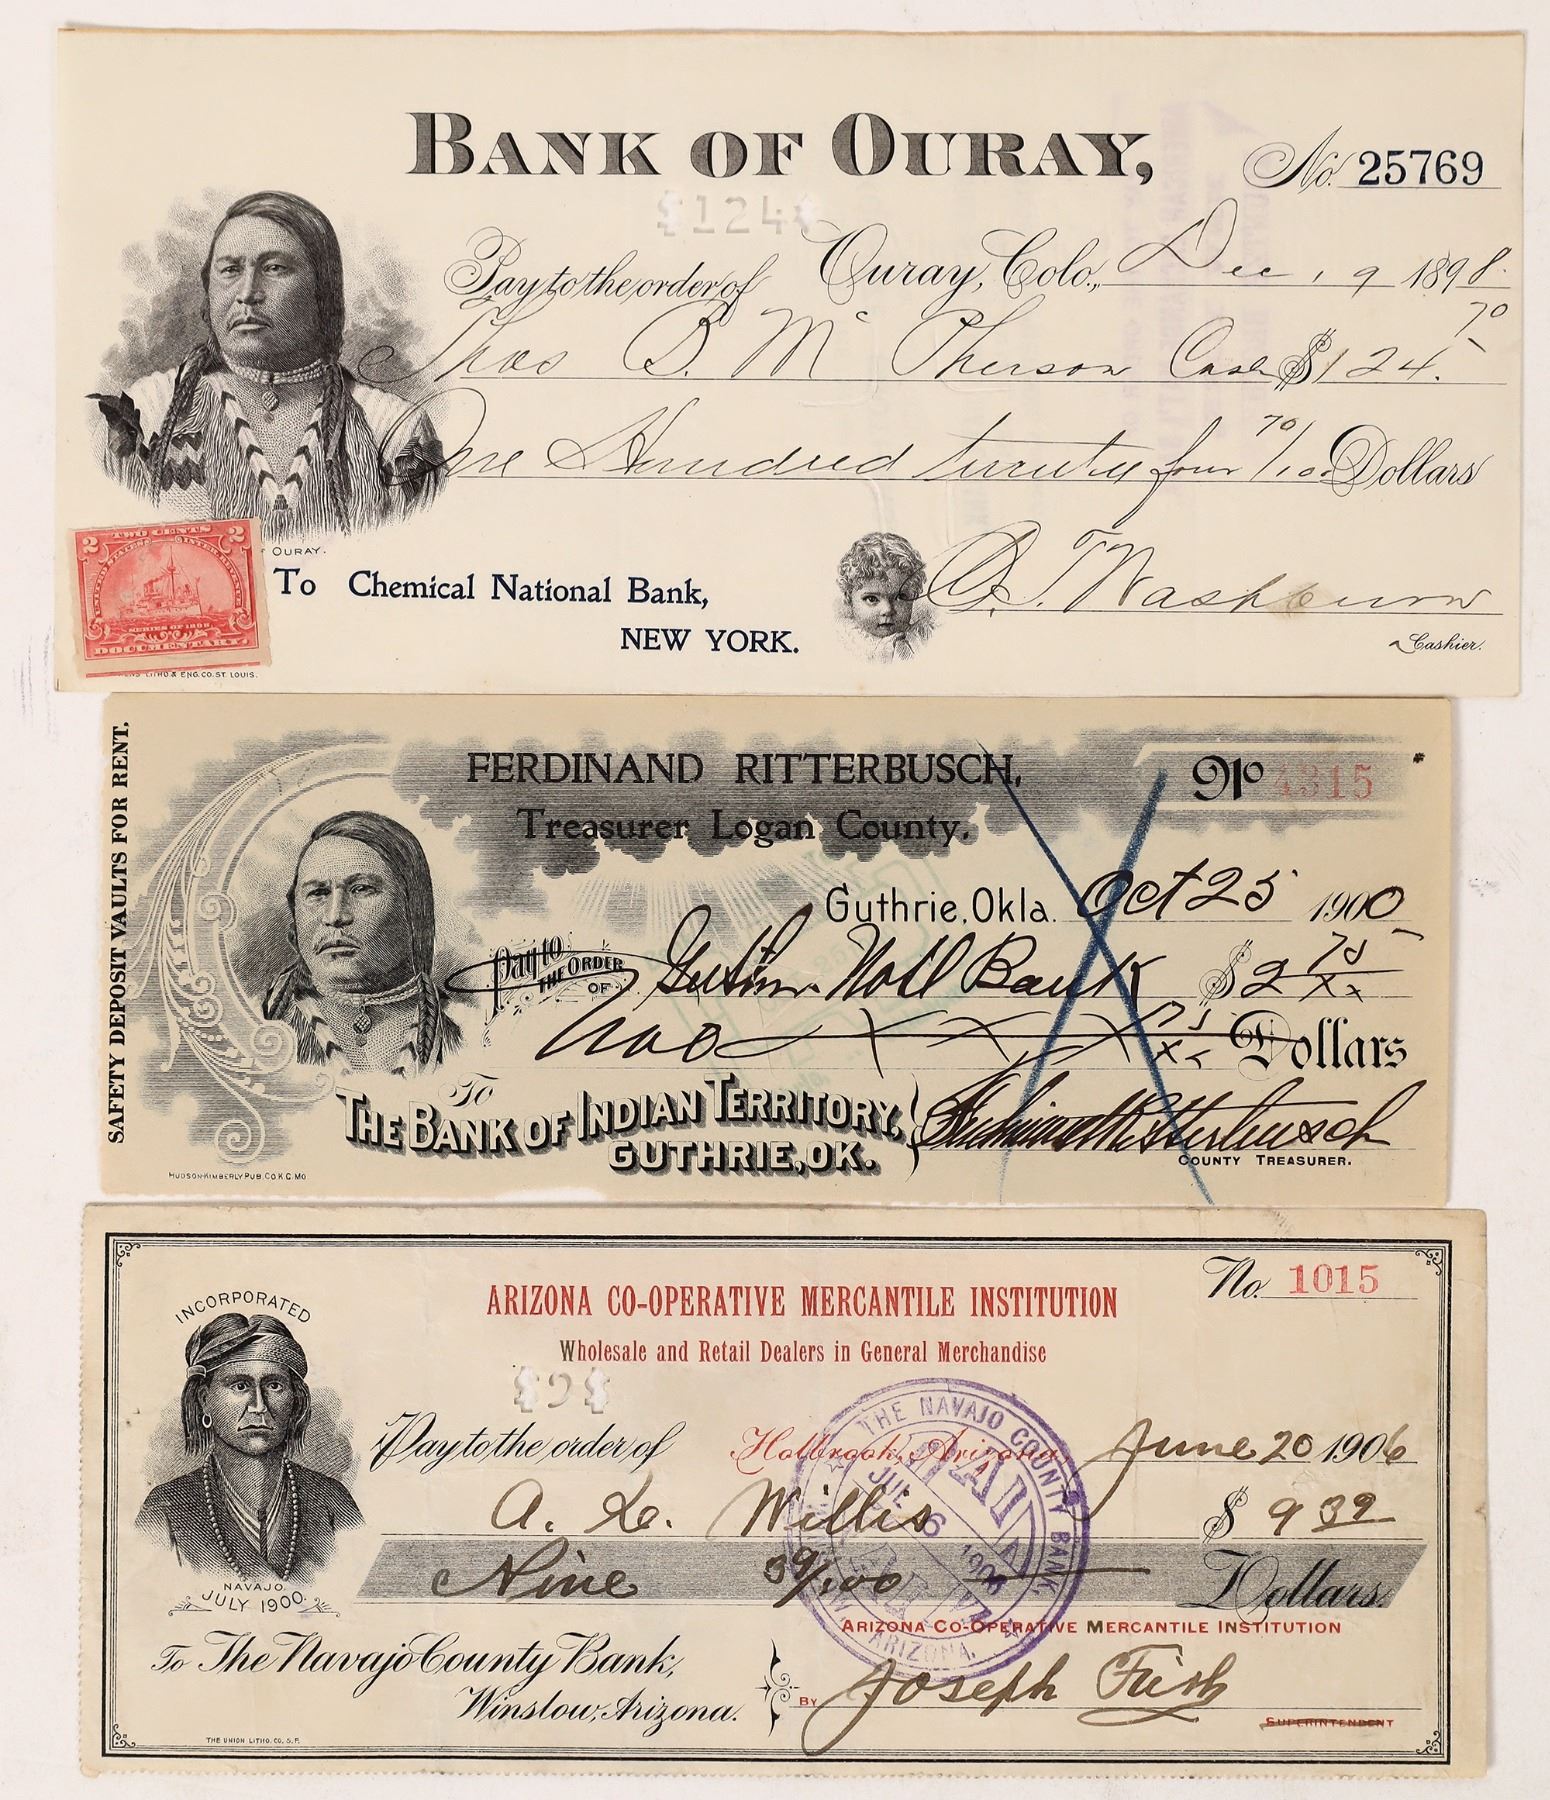 BANK OF OURAY,
No. 25769
$124$
Pay to the order of Ouray, Colo., Dec 19 1898.
Thos B. Mc Pherson Cash $124. 70
One Hundred twenty four 70/100 Dollars
TWO CENTS
2 2
SERIES OF 1898
DOCUMENTARY
OURAY.
To Chemical National Bank,
NEW YORK.
Washburn
Cashier.
LITHO & ENG. CO. ST. LOUIS.
SAFETY DEPOSIT VAULTS FOR RENT.
FERDINAND RITTERBUSCH,
No 4315
Treasurer Logan County.
Guthrie, Okla. Oct 25 1900
Pay to THE ORDER OF Guthrie Natl Bank $2 75/xx
Two 75/xx Dollars
To
THE BANK OF INDIAN TERRITORY,
GUTHRIE, OK.
Ferdinand Ritterbusch
COUNTY TREASURER.
HUDSON-KIMBERLY PUB. CO K.C. MO
No. 1015
INCORPORATED
ARIZONA CO-OPERATIVE MERCANTILE INSTITUTION
Wholesale and Retail Dealers in General Merchandise
$9$
Pay to the order of Holbrook, Arizona June 20 1906
A. Willis $ 9 39
Nine 39/100 Dollars.
NAVAJO.
JULY 1900.
THE NAVAJO COUNTY BANK,
PAID
6
1906
ARIZONA.
ARIZONA CO-OPERATIVE MERCANTILE INSTITUTION
To The Navajo County Bank,
Winslow, Arizona.
BY Joseph Fish
SUPERINTENDENT
THE UNION LITHO. CO. S.F.